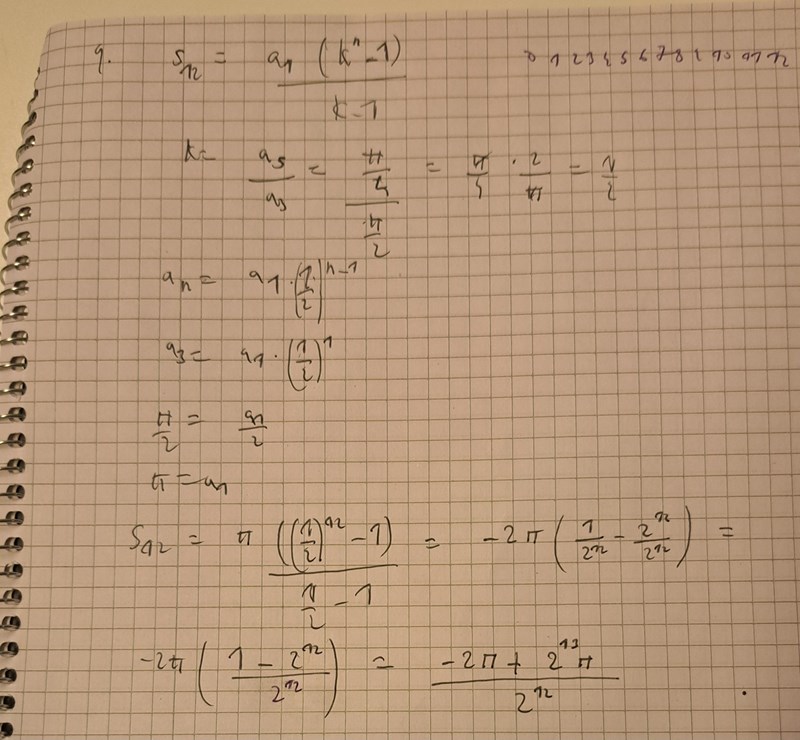 9. S₁₂ = a₁ (kⁿ - 1) / (k - 1) 0 1 2 3 4 5 6 7 8 9 10 11 12
k = a₅ / a₃ = (π/4) / (π/2) = π/4 · 2/π = 1/2
aₙ = a₁ · (1/2)ⁿ⁻¹
a₃ = a₁ · (1/2)¹
π/2 = a₁/2
π = a₁
S₁₂ = π ((1/2)¹² - 1) / (1/2 - 1) = -2π (1/2¹² - 2¹²/2¹²) =
-2π ((1 - 2¹²) / 2¹²) = (-2π + 2¹³π) / 2¹²